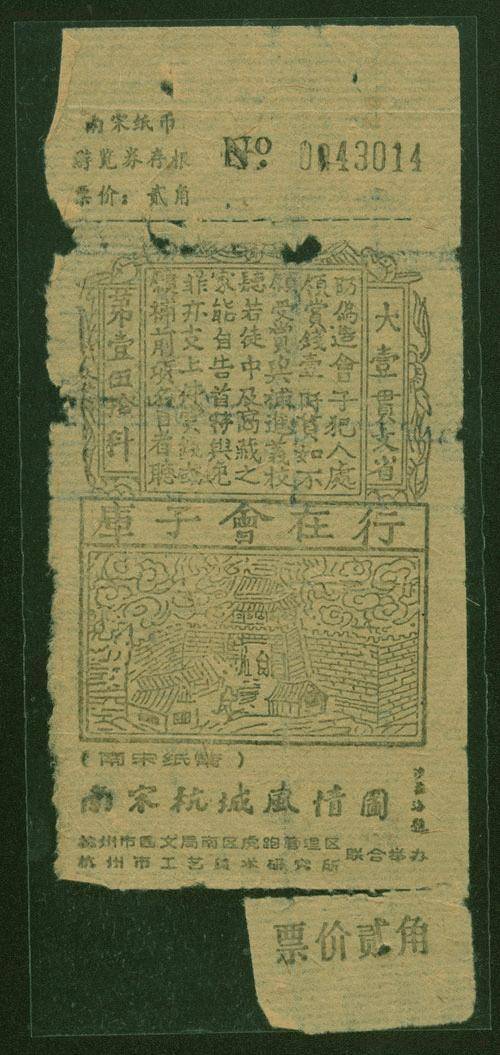 南宋纸币
游览券存根
票价：贰角
No 0043014
大壹貫文省
偽造會子犯人處
賞錢壹阡貫如不
受賞與補進義校
若徒中及窩藏之
家能自告首特與免
罪亦支上件賞錢或
願補前項名目者聽
第壹伍拾料
行在會子庫
(南宋纸幣)
南宋杭城風情圖
沙孟海題
杭州市园文局南区虎跑管理区
杭州市工艺美术研究所
联合举办
票价贰角